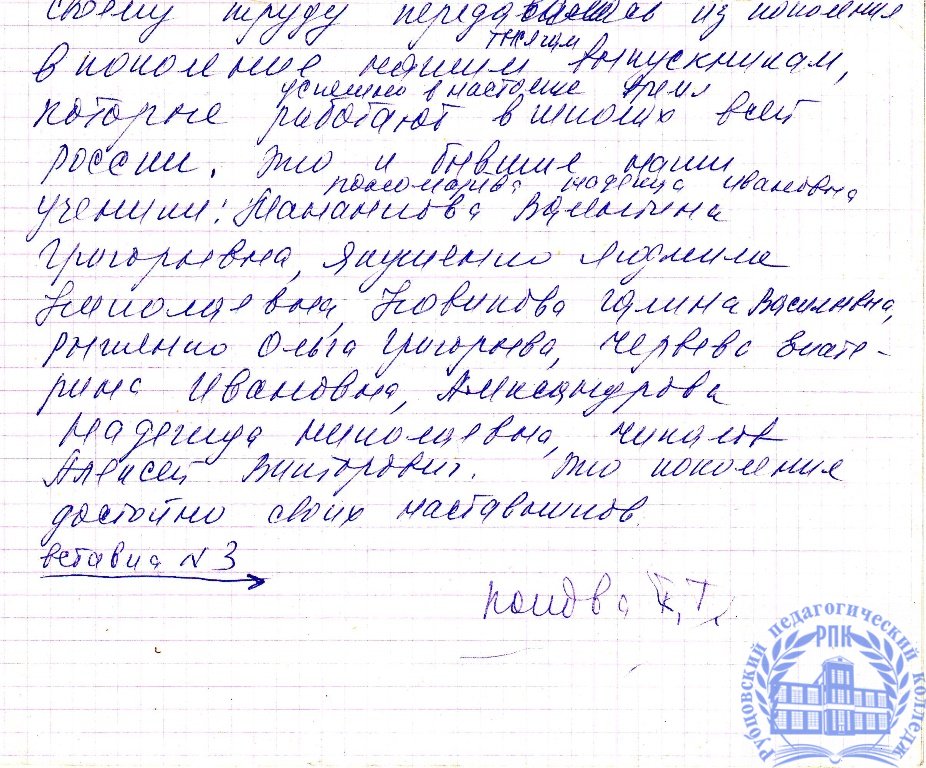 своему труду передавалось из поколения
тысячам
в поколение нашим выпускникам,
успешно в настоящие время
которые работают в школах всей
России. Это и бывшие наши
Пономарева Надежда Ивановна
ученики: Валентина
Григорьевна, Якушенко Людмила
Николаевна, Новикова Галина Васильевна,
Рыженко Ольга Григорьева, Червева Екате-
рина Ивановна, Александрова
Надежда Николаевна, Чикалов
Алексей Викторович. Это поколения
достойно своих наставников.
вставка N 3
К.Т.
Рубцовский педагогический колледж
РПК